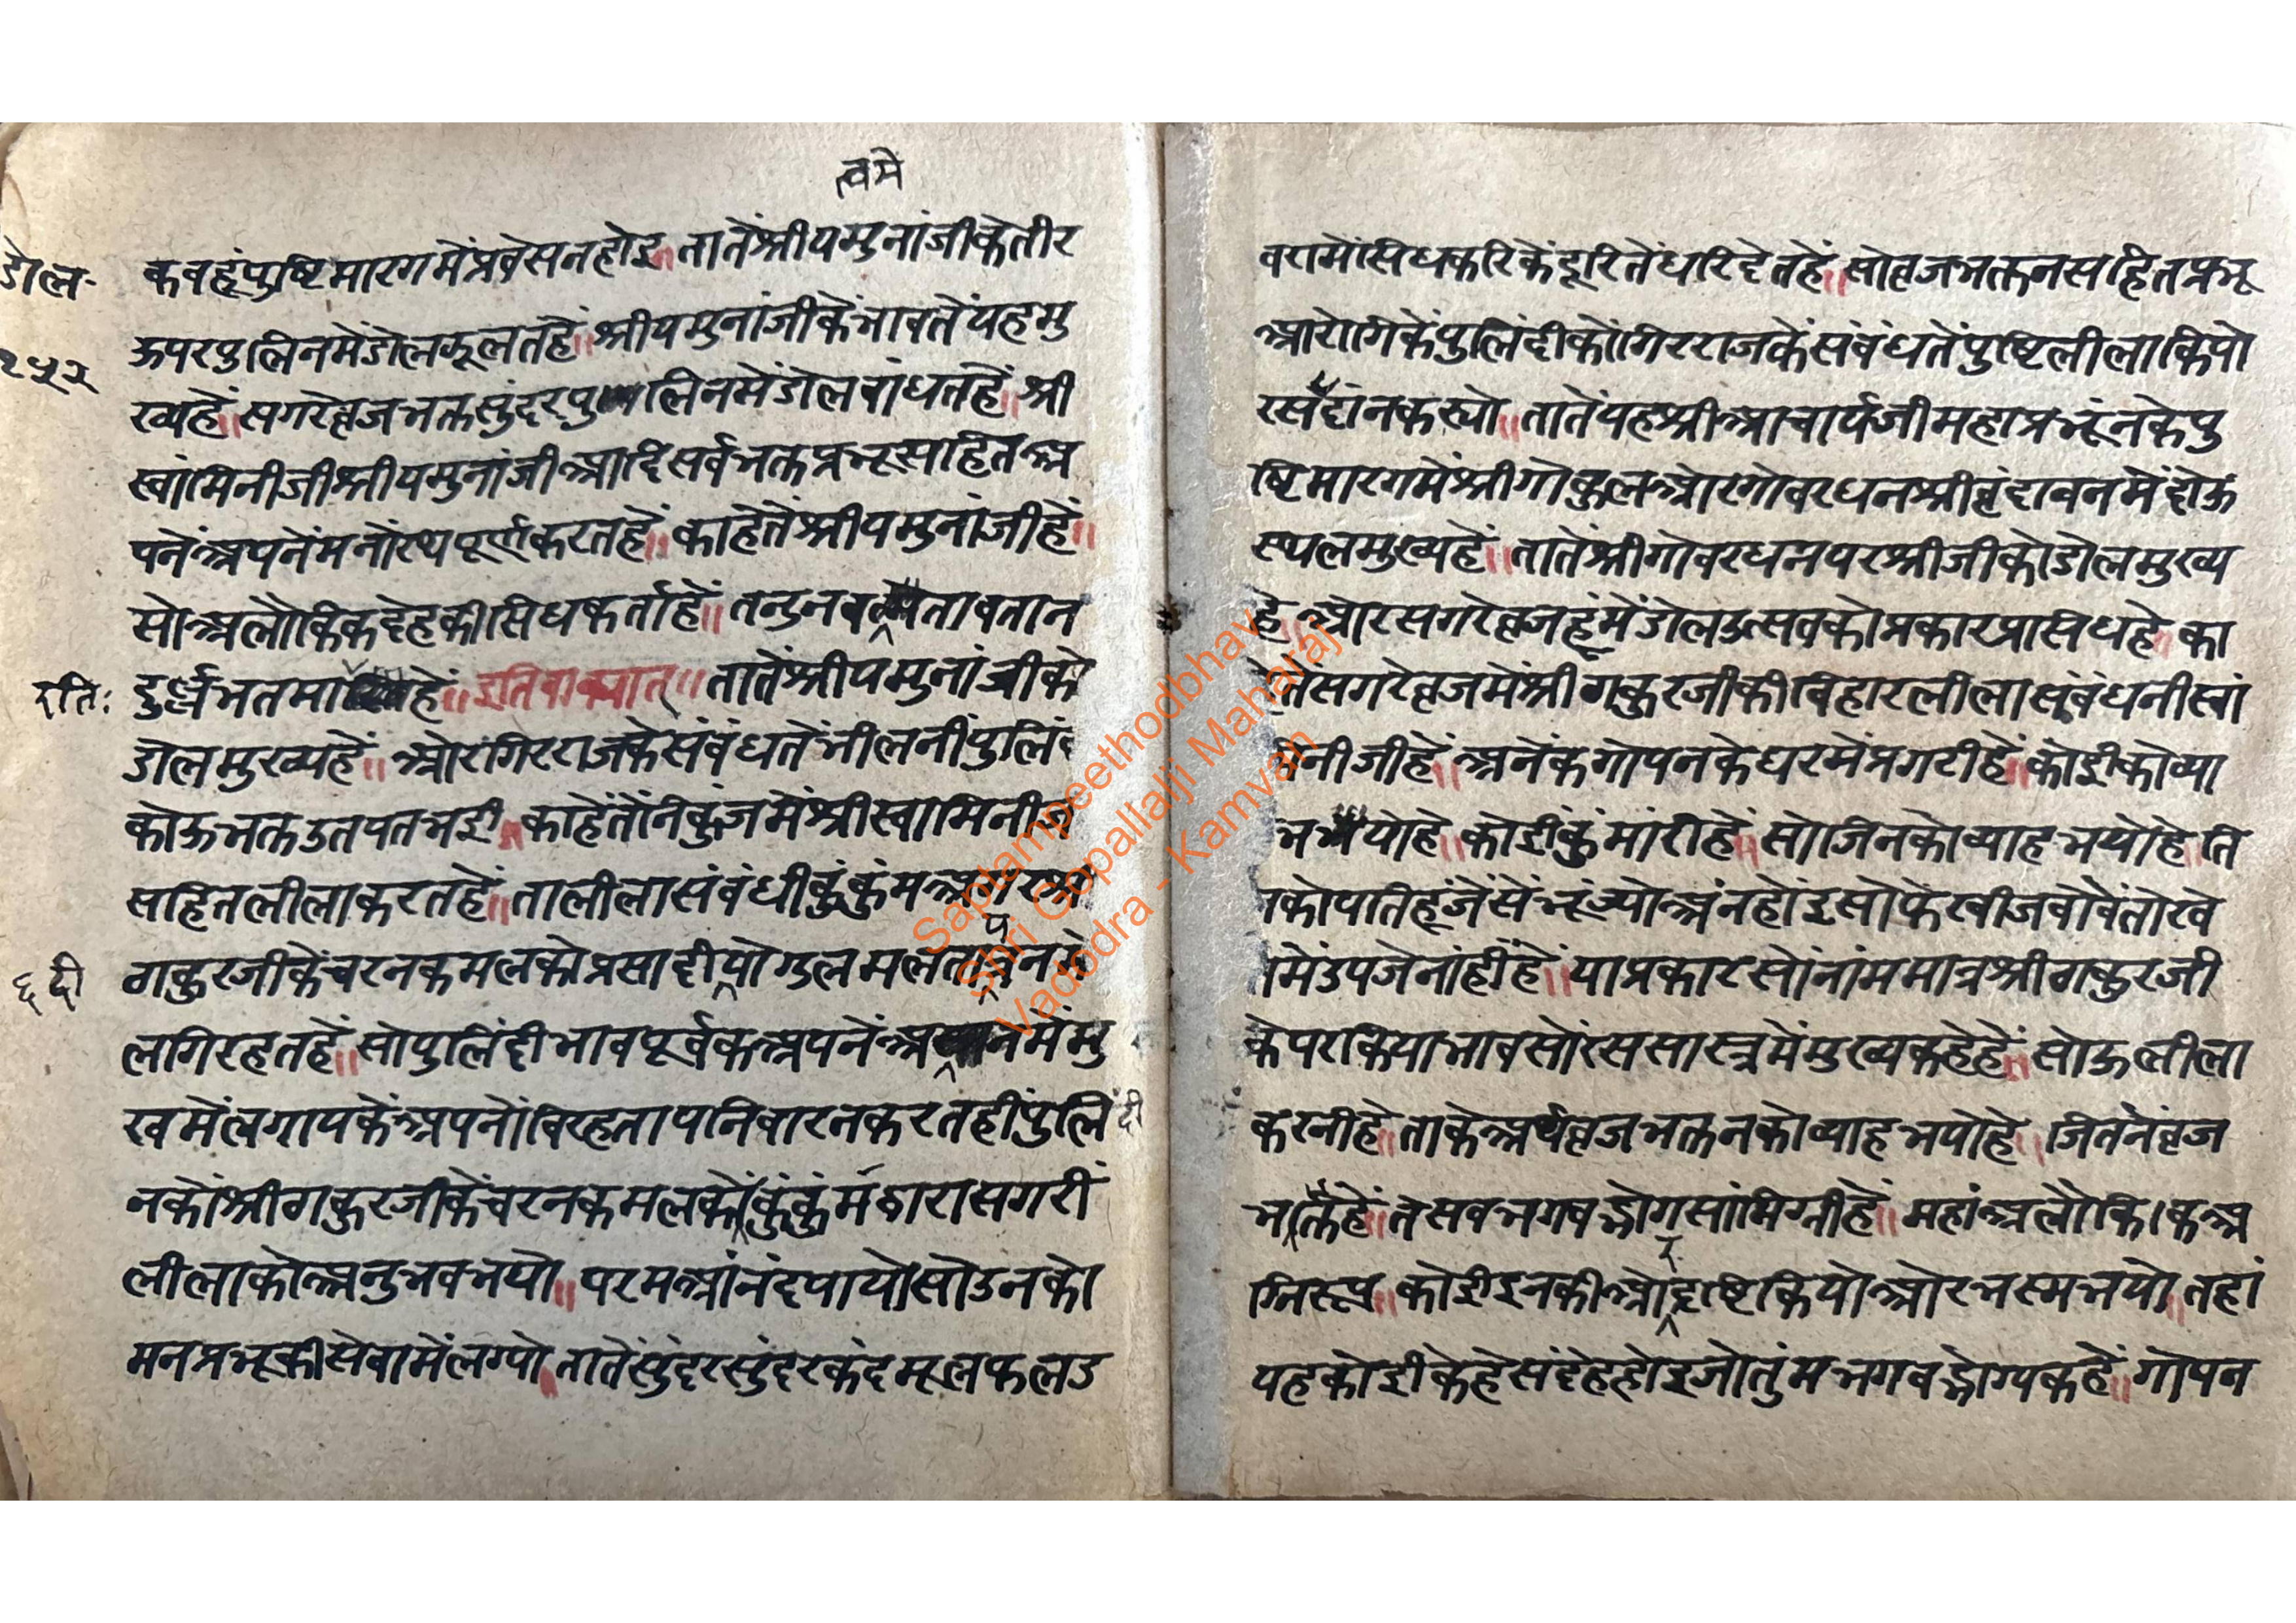 त्वमे
डोल-
कबहूंपुष्टिमारगमेंप्रवेसनहोइ॥तातेंश्रीयमुनांजीकेतीर
ऊपरपुलिनमेंडोलझूलतहें॥श्रीयमुनांजीकेंभावतेंयहमु
२५२
ख्यहें॥सगरेव्रजभक्तसुंदरपुलिनमेंडोलबांधतहें॥श्री
स्वांमिनीजीश्रीयमुनांजीआदिसर्वभक्तप्रभूसहितअ
पनेंअपनेंमनोरथपूर्णकरतहें॥काहेतेंश्रीयमुनांजीहें॥
सोअलौकिकदेहकीसिधकर्ताहें॥तनुनव तावतान
रतिः
दुर्ल्लभतमा हें॥इतिवाक्यात्॥तातेंश्रीयमुनांजीको
डोलमुख्यहें॥ओरगिरराजकेसंबंधतेंभीलनींपुलिं
कोऊभक्तउतपतभई॥काहेंतेंनिकुंजमेंश्रीस्वामिनीज
सहितलीलाकरतहें॥तालीलासंबंधीकुंकुंम
ठाकुरजीकेंचरनकमलकोप्रसादीयोगुलमलता
६ दी
लगिरहतहें॥सोपुलिंदीभावपूर्वकअपनेंअ नमेंमु
खमेंलगायकेंअपनोंविरहतापनिवारनकरतहींपुलिंदी
नकोंश्रीठाकुरजीकेंचरनकमलकोंकुंकुंमद्वारासगरीं
लीलाकोअनुभवभयो॥परमआंनंदपायोसोउनको
मनप्रभूकीसेवामेंलग्यो॥तातेंसुंदरसुंदरकंदमूलफलड
बरामेंसिधकरिकेंदूरितेंधरिदेतहें॥सोव्रजभक्तनसहितप्रभू
आरोगिकेंपुलिंदीकोंगिरराजकेंसंबंधतेंपुष्टिलीलाकियो
रसदांनकस्यो॥तातेंयहश्रीआचार्यजीमहाप्रभूंनकेपु
ष्टिमारगमेंश्रीगोकुलओरगोवरधनश्रीवृंदावनमेंदोऊ
स्थलमुख्यहें॥तातेंश्रीगोवरधनपरश्रीजीकोडोलमुख्य
हे॥ओरसगरेव्रजहूंमेंडोलउत्सवकोप्रकारप्रसिधहे॥का
तेंसगरेव्रजमेंश्रीठाकुरजीकीविहारलीलासंबंधनीस्वां
नीजीहें॥अनेंकगोपनकेघरमेंप्रगटीहें॥कोईकोव्या
भयोहे॥कोईकुंमांरीहें॥सोजिनकोव्याहभयोहे॥ति
कोपतिहूंजेंसेंभूंज्योअंनहोंइसोफेरबीजबोवेंतोखे
मेंउपजेनांहींहें॥याप्रकारसोंनांममात्रश्रीठाकुरजी
केपराकियाभावसोंरससास्त्रमेंमुख्यकहेहें॥सोऊलीला
करनीहे॥ताकेअर्थव्रजभक्तनकोव्याहभयोहे॥जितनेंव्रज
भक्तहें॥तेसबभगवद्भोगसांमिग्रीहें॥महांअलौकिकअ
ग्निरूप॥कोईइनकीओरदृष्टिकियोओरभस्मभयो॥तहां
यहकोईकेहेसंदेहहोइजोतुंमभगवद्भोग्यकहें॥गोपन